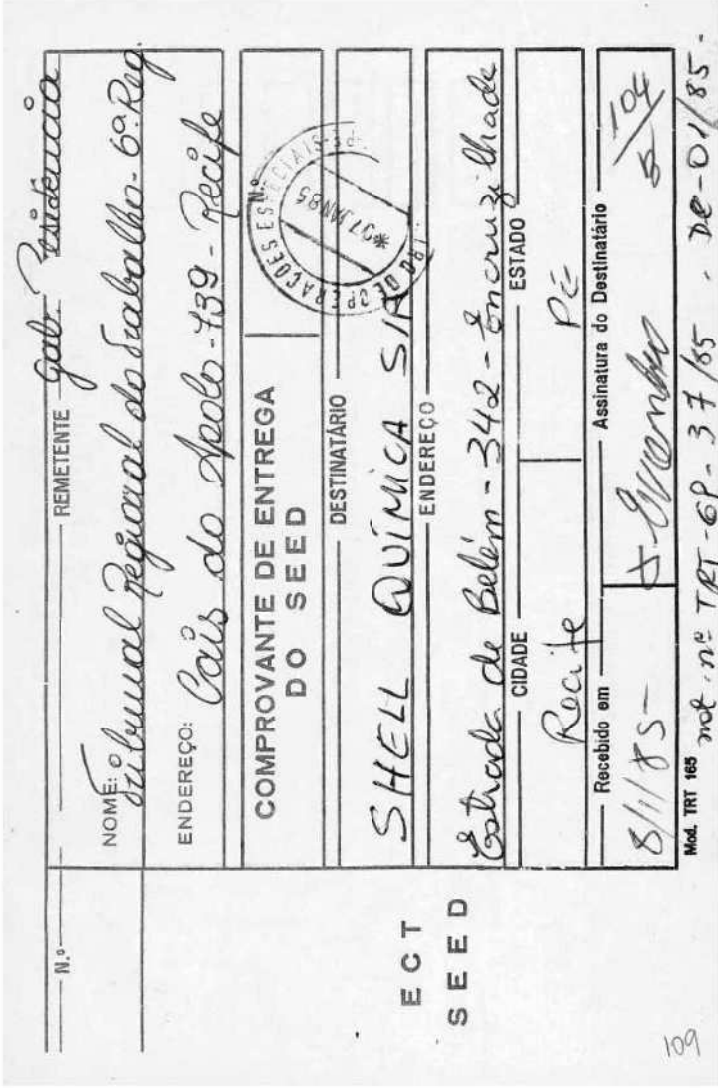 N.º
REMETENTE Gab. Presidência
NOME: Tribunal Regional do Trabalho - 6ª Reg.
ENDEREÇO: Cais do Apolo - 739 - Recife
ECT
SEED
COMPROVANTE DE ENTREGA
DO SEED
N.º
OPERAÇÕES ESPECIAIS
*07 JAN 85
DESTINATÁRIO
SHELL QUÍMICA S/A
ENDEREÇO
Estrada de Belém - 342 - Encruzilhada
CIDADE
ESTADO
Recife
PE
Recebido em
Assinatura do Destinatário
8/1/85
104
Mod. TRT 165
not. nº TRT - GP - 37/85 . DC - 01/85 -
109